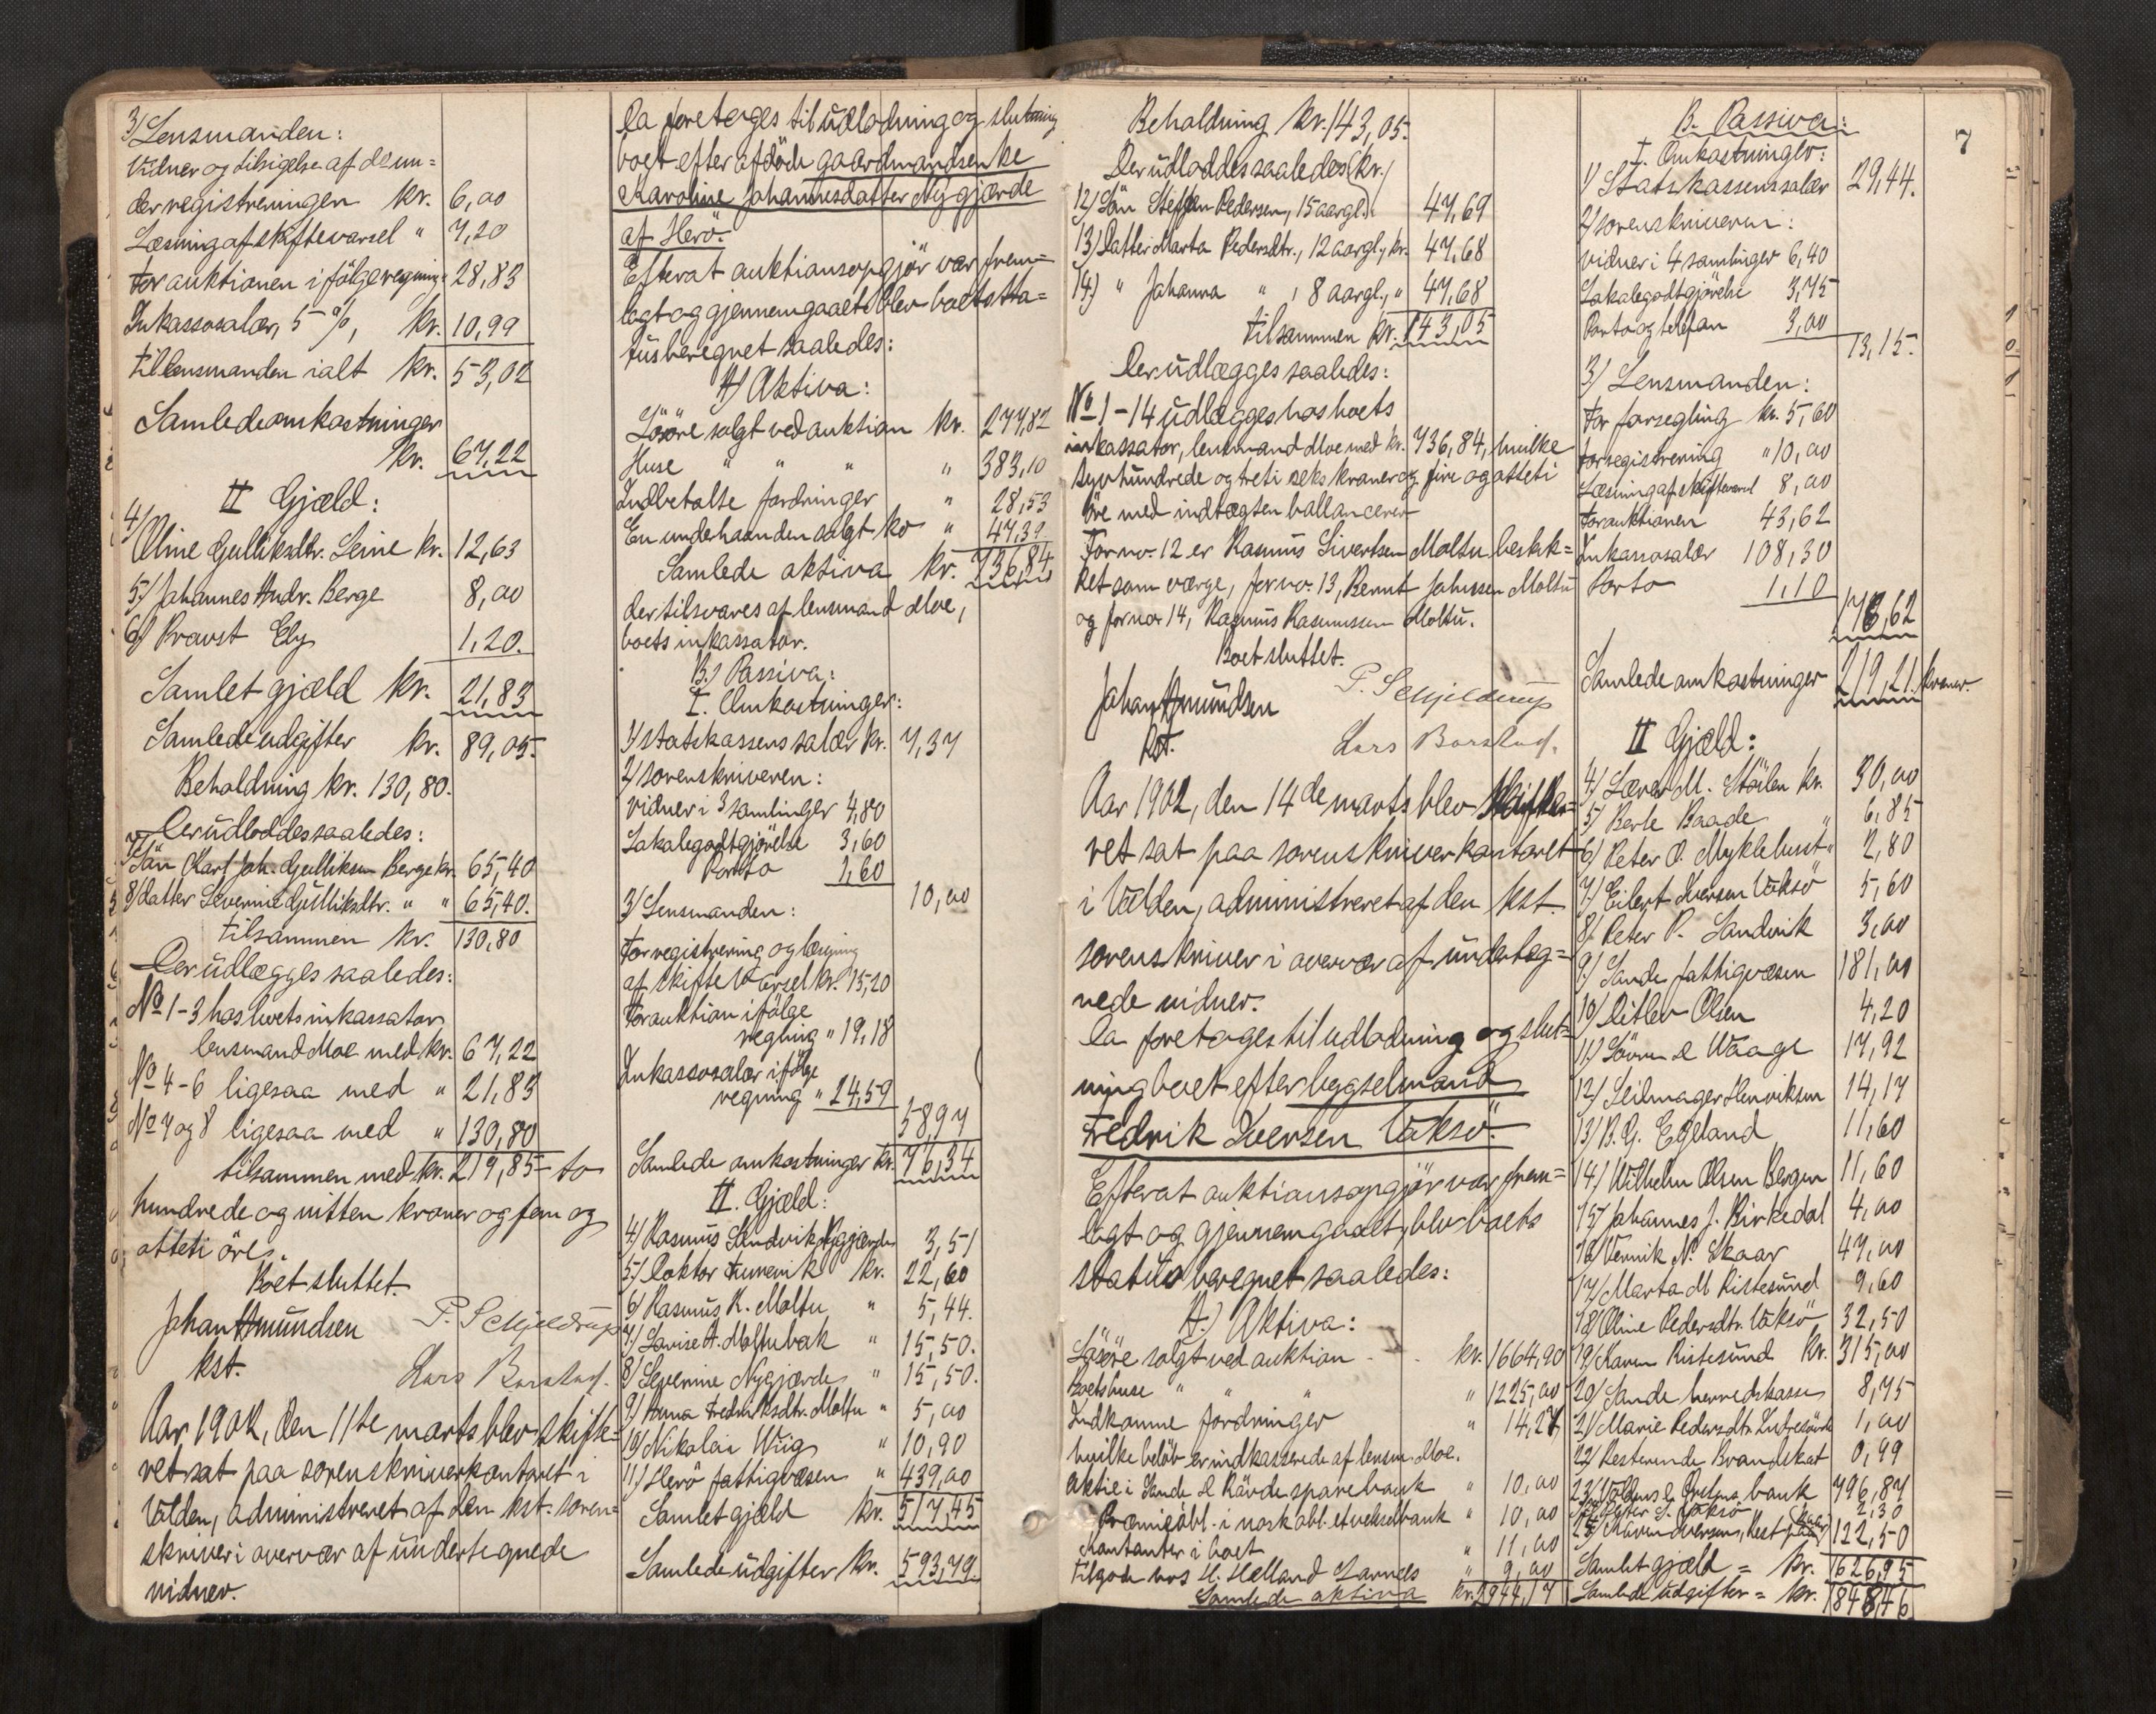 3/ Lensmanden:
Vidner og tilsigelse af de un=
der registreringen kr. 6,00
Læsning af skiftevarsel " 7,20
For auktionen ifölge regning " 28,83
Inkassosalær, 5 %, kr. 10,99
til lensmanden ialt kr. 53,02
Samlede omkostninger
kr. 67,22
II Gjæld:
4/ Oline Gulliksdtr. Leine kr. 12,63
5/ Johannes Andr. Berge 8,00
6/ Provst Ely 1,20.
Samlet gjæld kr. 21,83
Samlede udgifter kr. 89,05.
Behaldning kr. 130,80.
Der udloddes saaledes:
7/ Sön Karl Joh. Gulliksen Berge kr. 65,40
8/ datter Severine Gulliksdtr. " " 65,40.
tilsammen kr. 130,80
Der udlægges saaledes:
No 1-3 hos boets inkassator
lensmand Moe med kr. 67,22
No 4-6 ligesaa med " 21,83
No 7 og 8 ligesaa med " 130,80
tilsammen med kr. 219,85 - to
hundrede og nitten kroner og fem og
otteti öre.
Boet sluttet.
Johan Amundsen P. Schjeldrup
kst. Lars Barstad.
Aar 1902, den 11te marts blev skifte=
ret sat paa sorenskriverkontoret i
Volden, administreret af den kst. soren=
skriver i overvær af undertegnede
vidner.
Da foretoges til udlodning og slutning
boet efter afdöde gaardmandsenke
Karoline Johannesdatter Nygjærde
af Herö.
Efterat auktionsopgjör var frem=
lagt og gjennemgaaet blev boets sta=
tus beregnet saaledes:
A) Aktiva:
Lösöre solgt ved auktion kr. 277,82
Huse " " " " 383,10
Indbetalte fordringer " 28,53
En underhaanden solgt ko " 47,39
Samlede aktiva kr. 736,84
der tilsvares af lensmand Moe,
boets inkassator.
B) Passiva:
I. Omkostninger:
1/ statskassens salær kr. 7,37
2/ sorenskriveren:
vidner i 3 samlinger 4,80
Lokalegodtgjörelse 3,60
Porto 1,60
10,00
3/ Lensmanden:
For registrering og læsning
af skiftevarsel kr. 15,20
For auktion ifölge
regning " 19,18
Inkassosalær ifölge
regning " 24,59
58,97
Samlede omkostninger kr. 76,34
II. Gjæld:
4/ Rasmus Sandvik Nygjærde 3,51
5/ Doktor kr. 22,60
6/ Rasmus K. Moltu " 5,44.
7/ Lovise A. Moltubak " 15,50.
8/ Severine Nygjærde " 15,50.
9/ Anna Fredriksdtr. Moltu " 5,00
10/ Nikolai Wiig " 10,90
11/ Herö fattigvæsen " 439,00
Samlet gjæld kr. 517,45
Samlede udgifter kr. 593,79.
7
Behaldning kr. 143,05.
Der udloddes saaledes (kr.)
12) Sön Steffen Pedersen, 15 aar gl. 47,69
13) Datter Marta Pedersdtr., 12 aar gl., kr. 47,68
14) " Johanna " , 8 aar gl., " 47,68
tilsammen kr. 143,05
Der udlægges saaledes:
No 1-14 udlægges hos boets
inkassator, lensmand Moe med kr. 736,84, hvilke
syvhundrede og treti seks kroner og fire og otteti
öre med indtægten ballancerer
For no. 12 er Rasmus Sivertsen Moltu beskik=
ket som værge, for no. 13, Bernt Johnsen Moltu
og for no 14, Rasmus Rasmussen Moltu.
Boet sluttet.
Johan Amundsen P. Schjeldrup
kst. Lars Barstad.
Aar 1902, den 14de marts blev skifte=
ret sat paa sorenskriverkontoret
i Volden, administreret af den kst.
sorenskriver i overvær af underteg=
nede vidner.
Da foretoges til udlodning og slut=
ning boet efter bygselmand
Fredrik Iversen Voksö.
Efterat auktionsopgjör var frem=
lagt og gjennemgaaet, blev boets
status beregnet saaledes:
A.) Aktiva:
Lösöre solgt ved auktion kr. 1664,90
Boets huse " " " " 1225,00
Indkomne fordringer " 14,27
hvilke belöb er indkasserede af lensm. Moe.
Aktie i Sande & Rövde sparebank " 10,00
Præmieobl. i norsk obl. et vekselbank " 10,00
Kontanter i boet " 11,00
Tilgode hos H. Helland Larnes " 9,00
Samlede aktiva kr. 2944,17
B. Passiva:
I. Omkostninger:
1) Statskassens salær 29,44.
2/ sorenskriveren:
vidner i 4 samlinger 6,40
Lokalegodtgjörelse 3,75
Porto og telefon 3,00
13,15.
3/ Lensmanden:
For forsegling kr. 5,60
For registrering " 10,00
Læsning af skiftevarsel 8,00
For auktionen 43,62
Inkassosalær 108,30
Porto 1,10
176,62
Samlede omkostninger 219,21. kroner.
II Gjæld:
4/ Lærer M. Stöilen kr. 30,00
5/ Berte Baade " 6,85
6/ Peter O. Myklebust " 2,80
7/ Eilert Iversen Voksö 5,60
8/ Peter P. Sandvik 3,00
9/ Sande fattigvæsen 181,00
10/ Ditlev Olsen 4,20
11/ Sövren & Waage 17,92
12/ Seilmager Henriksen 14,17
13/ B. G. Egeland 11,60
14/ Wilhelm Olsen Bergen 11,60
15/ Johannes J. Birkedal 4,00
16/ Vennik N. Skaar 47,00
17/ Marta M Ristesund 9,60
18/ Oline Pedersdtr. Voksö 32,50
19/ Karen Ristesund kr. 315,00
20/ Sande herredskasse 8,75
21/ Marie Pedersdtr. 1,00
22/ Resterende Brandskat 0,99
23/ Voldens & Örstens bank 796,87
Peter S. Voksö 2,30
25/ Karen Iversen, Rest 122,50
Samlet gjæld = kr. 1626,95
Samlede udgifter = kr. 1848,46